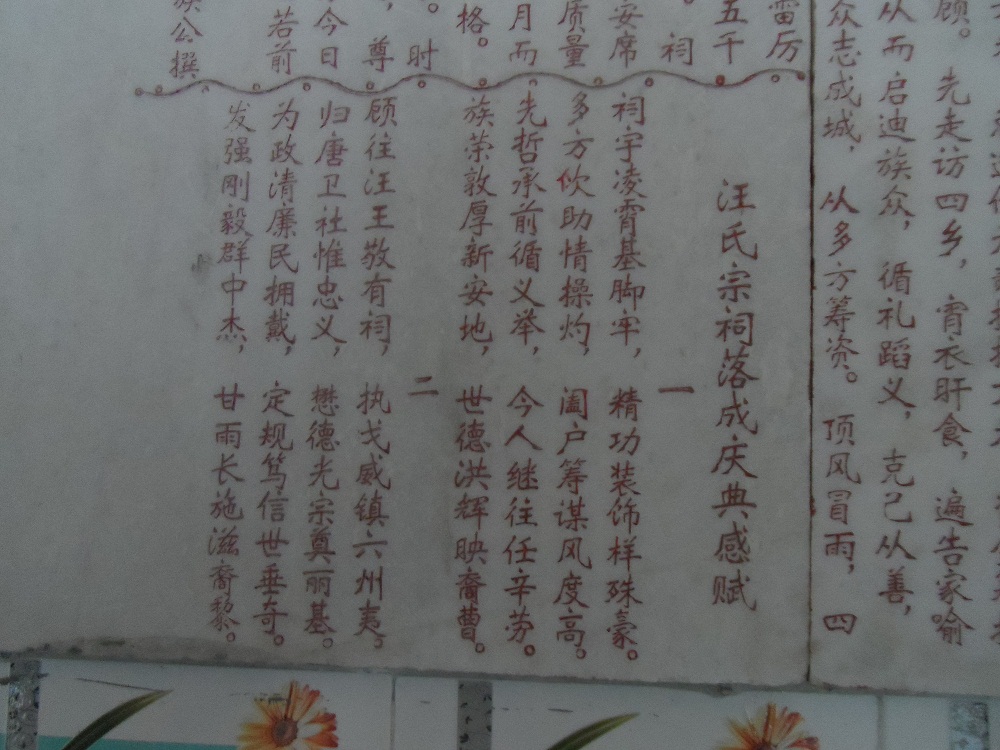 顾。先走访四乡，宵衣旰食，遍告家喻
从而启迪族众，循礼蹈义，克己从善，
众志成城，从多方筹资。顶风冒雨，四
雷厉
五千
。祠
安席
质量
月而
格。
。时
，尊
今日
若前
族公撰
汪氏宗祠落成庆典感赋
一
祠宇凌霄基脚牢，精功装饰样殊豪。
多方佽助情操灼，阖户筹谋风度高。
先哲承前循义举，今人继往任辛劳。
族荣敦厚新安地，世德洪辉映裔曹。
二
顾往汪王敬有祠，执戈威镇六州夷。
归唐卫社惟忠义，懋德光宗奠丽基。
为政清廉民拥戴，定规笃信世垂奇。
发强刚毅群中杰，甘雨长施滋裔黎。